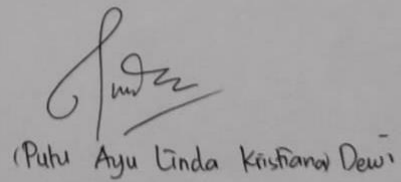 (Putu Ayu Linda Kristiana Dewi